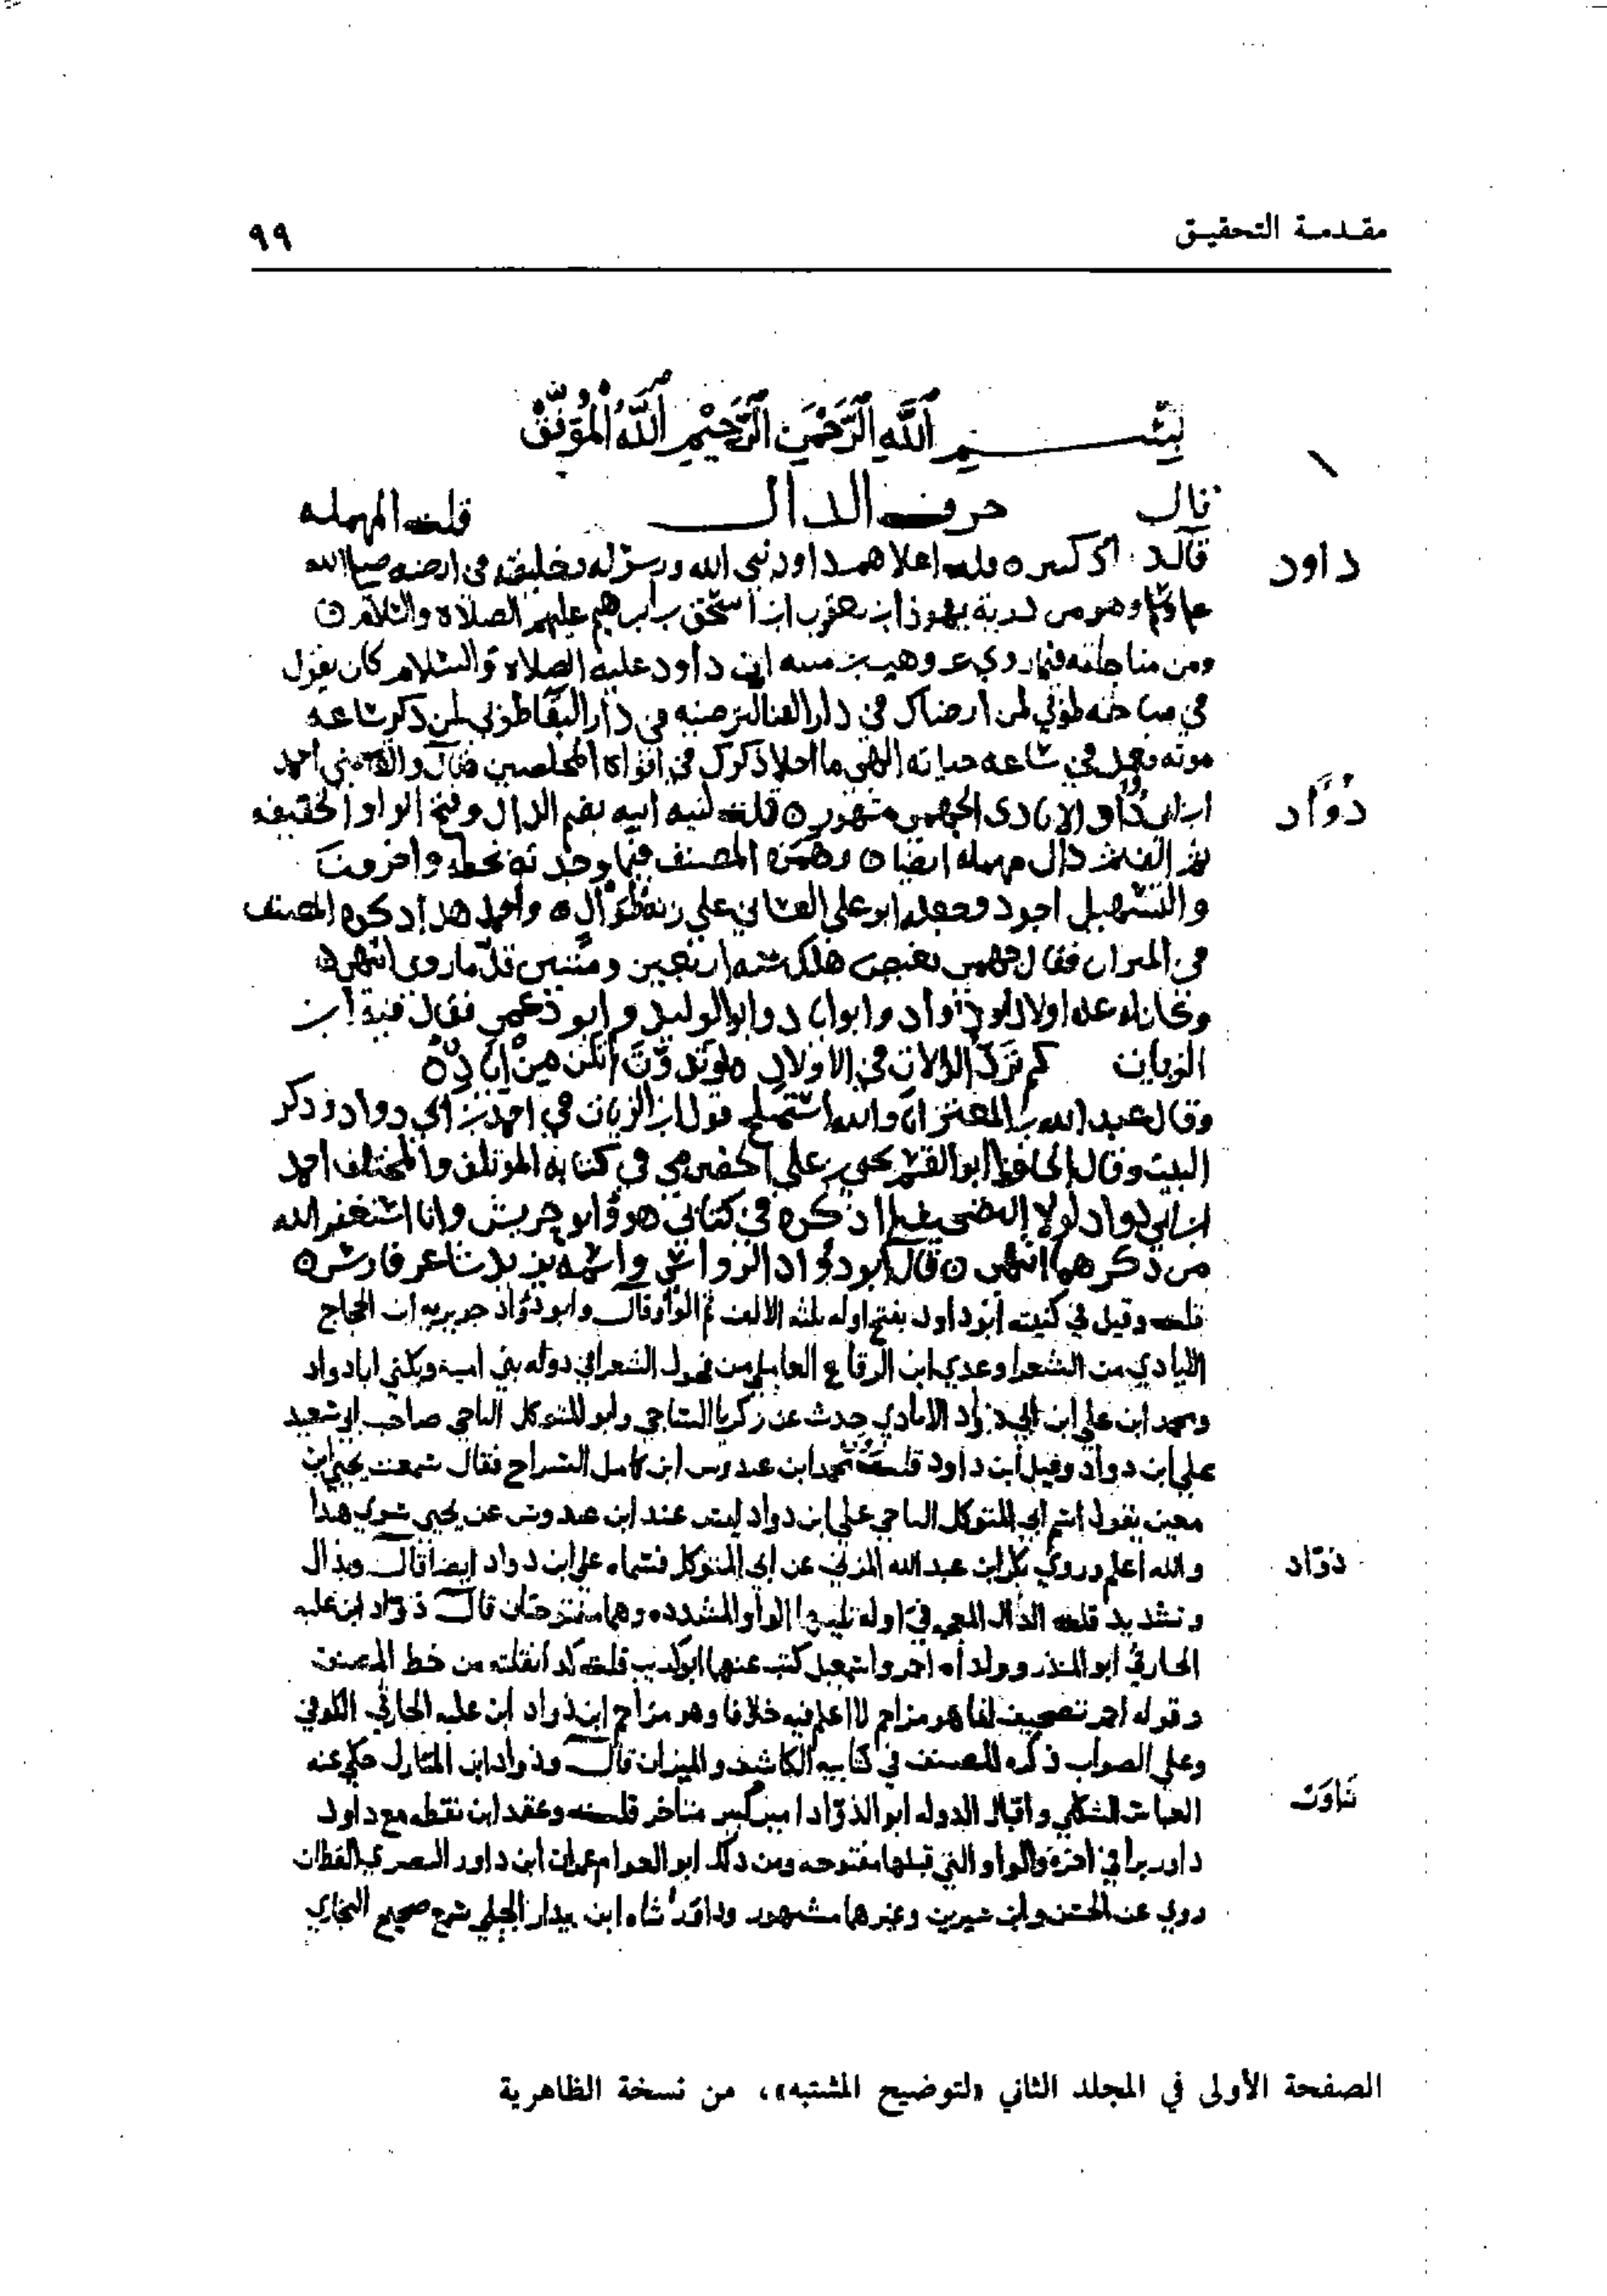 مقدمة التحقيق
٩٩
بسم الله الرحمن الرحيم الله الموفق
قال حرف الدال قلت المهملة
داود
قال د اود كثير قلت اعلاهم داود نبي الله ورسوله وخليفته في ارضه صلى الله
عليه وسلم وهو من ذرية يهوذا بن يعقوب ابن اسحق بن ابرهيم عليهم الصلاة والسلام
ومن مناجاته فيما روي عن وهيب ان داود عليه الصلاة والسلام كان يقول
في مناجاته طوبى لمن ارضاك في دار الفنا لترضيه في دار البقا طوبى لمن ذكر ساعة
موته فعمل في ساعة حياته الهي ما احلا ذكرك في افواه المخلصين قال والقاضي احمد
دُوَاد
ابن ابي دُواد الايادي الجهمي مشهور قلت كنية ابيه بضم الدال وفتح الواو الخفيفة
ثم الف ثم دال مهملة ايضا وهمزه المصنف فيما وجدته بخطه واخرون
والتسهيل اجود وجعله ابو علي الغساني على زنة طوال واحمد هذا ذكره المصنف
في الميزان فقال جهمي بغيض هلك سنة اربعين ومئتين قل ما روى انتهى
وكان له عدة اولاد ابو دواد وابو الوليد وابو دعمي فقال فيه ابن
الزيات
وقال عبد الله بن المعتز انا والله استملح قول ابن الزيات في احمد بن ابي دواد وذكر
البيت وقال الحافظ ابو القسم يحيى بن علي الحضرمي في كتابه المؤتلف والمختلف احمد
ابن ابي دواد لولا ان اذكره في كتابي هو وانا استغفر الله
من ذكرهما انتهى قال ابو دواد الرواسي واسمه يزيد شاعر فارس
قلت وقيل في كنيته ابو داود بفتح اوله ثم الالف ثم الواو قال وابو دواد جويرية ابن الحجاج
الايادي من الشعرا وعدي ابن الرقاع العاملي من فحول الشعرا في دولة بني امية ويكنى ابا دواد
ومحمد ابن علي ابن ابي دواد الايادي حدث عن زكريا الساجي وابو المتوكل الناجي صاحب ابي سعيد
علي ابن دواد وقيل ابن داود قلت محمد ابن عبدوس ابن كامل السراج فقال سمعت يحيى ابن
معين يقول اسم ابي المتوكل الناجي علي ابن دواد ليس عند ابن عبدوس عن يحيى سوى هذا
والله اعلم وروى بكر ابن عبد الله المزني عن ابي المتوكل فسماه علي ابن دواد ايضا قال وبذال
ذوّاد
وتشديد قلت الذال المعجمة في اوله تليها الواو المشددة وهما مفتوحتان قال ذوّاد ابن علبة
الحارثي ابو المنذر وولداه احمر واسمعيل كتب عنهما ابو كريب قلت كذا نقلته من خط المصنف
وقوله احمر تصحيف انما هو مزاحم لا اعلم فيه خلافا وهو مزاحم ابن ذواد ابن علبة الحارثي الكوفي
وعلى الصواب ذكره المصنف في كتابيه الكاشف والميزان قال وذواد ابن المبارك حكى عنه
العباس الشكلي واقبال الدولة ابو الذوّاد امير كبير متاخر قلت وعقد ابن نقطة مع داود
داور برا في اخره والواو التي قبلها مفتوحة ومن ذلك ابو العوام عمران ابن داور البصري القطان
روى عن الحسن وابن سيرين وغيرهما مشهور
الصفحة الأولى في المجلد الثاني «لتوضيح المشتبه»، من نسخة الظاهرية